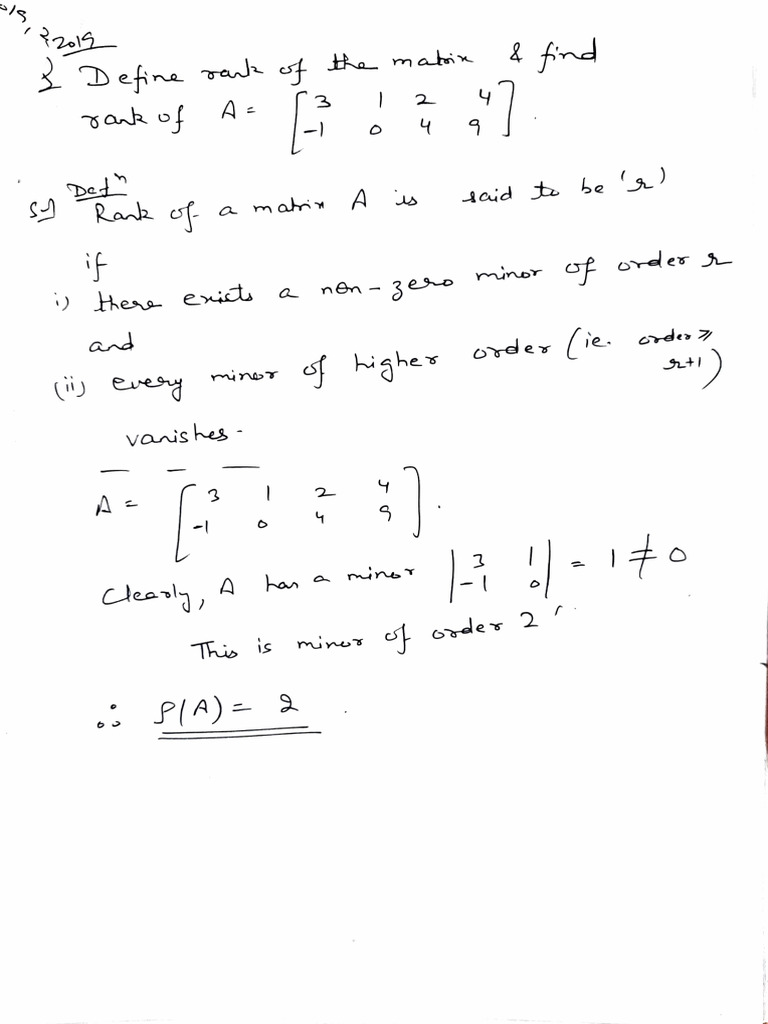 2019
Define rank of the matrix & find
rank of A = [ 3 1 2 4
-1 0 4 9 ].
Defⁿ
Rank of a matrix A is said to be 'r'
if
i) there exists a non-zero minor of order r
and
(ii) every minor of higher order (ie. order ≥
r+1)
vanishes.
A = [ 3 1 2 4
-1 0 4 9 ].
Clearly, A has a minor | 3 1
-1 0 | = 1 ≠ 0
This is minor of order 2
∴ ρ(A) = 2